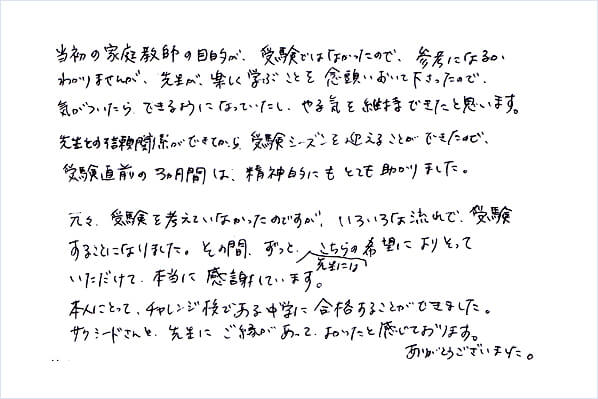 当初の家庭教師の目的が、受験ではなかったので、参考になるか
わかりませんが、先生が、楽しく学ぶことを念頭においで下さったので、
気がついたら、できるようになっていたし、やる気を維持できたと思います。
先生との信頼関係ができてから、受験シーズンを迎えることができたので、
受験直前の3ヵ月間は、精神的にもとても助かりました。
元々、受験を考えていなかったのですが、いろいろな流れで、受験
することになりました。その間、ずっと、こちらの希望によりそって
先生には
いただけて、本当に感謝しています。
本人にとって、チャレンジ校である中学に合格することができました。
サクシードさんと、先生にご縁があって、よかったと感じております。
ありがとうございました。